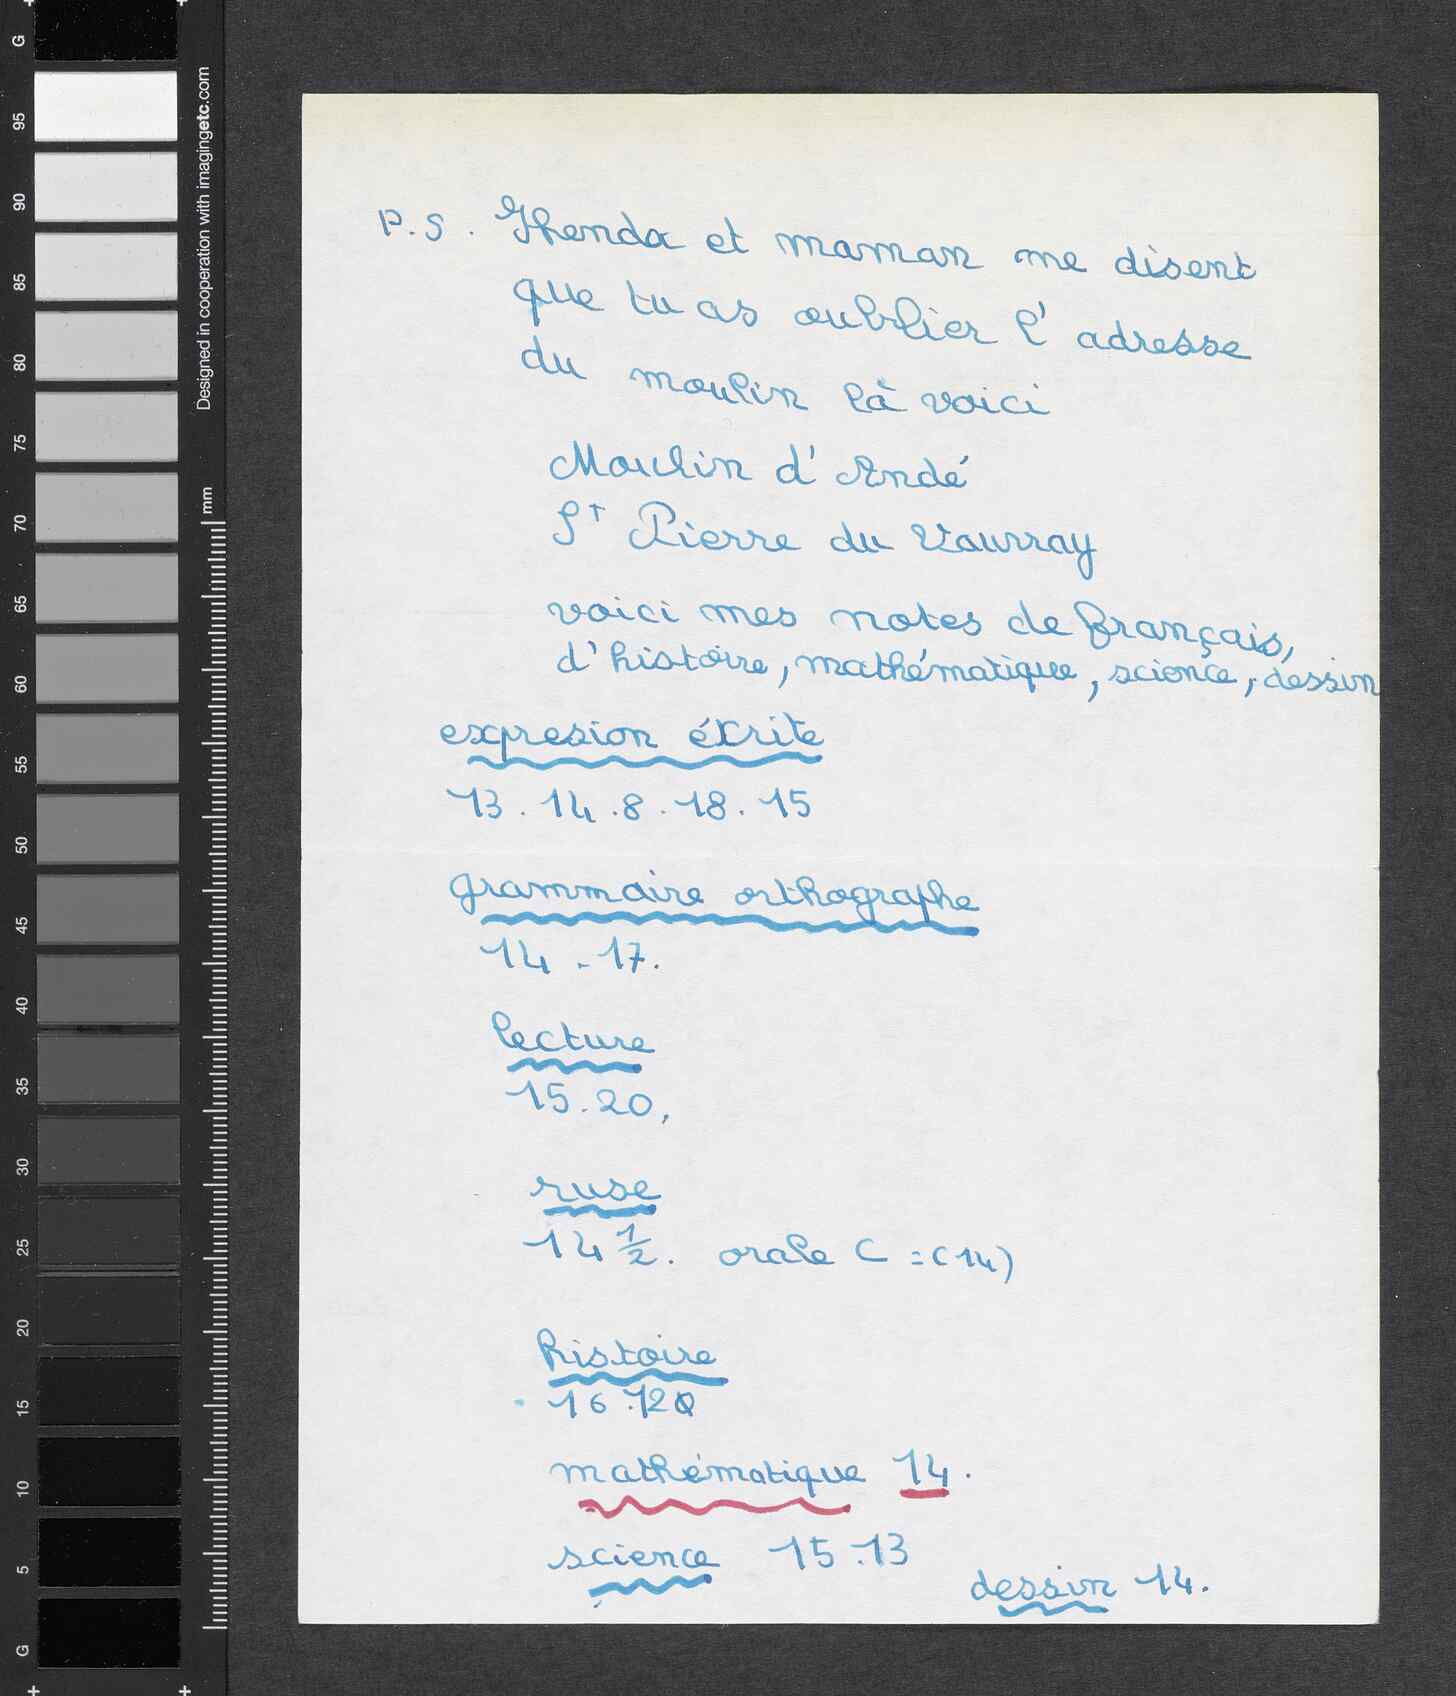 P.S. Ghenda et maman me disent
que tu as oublier l'adresse
du moulin là voici
Moulin d'Andé
St Pierre du Vauvray
voici mes notes de français,
d'histoire, mathématique, science, dessin
expresion écrite
13. 14. 8. 18. 15
grammaire orthographe
14 - 17.
lecture
15. 20,
ruse
14 1/2. orale C = (14)
histoire
16. 120
mathématique 14.
science 15. 13
dessin 14.
G
95
90
85
80
75
70
65
60
55
50
45
40
35
30
25
20
15
10
5
G
Designed in cooperation with imagingetc.com
mm